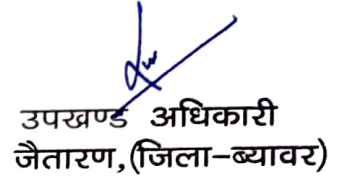 उपखण्ड अधिकारी
जैतारण,(जिला-ब्यावर)